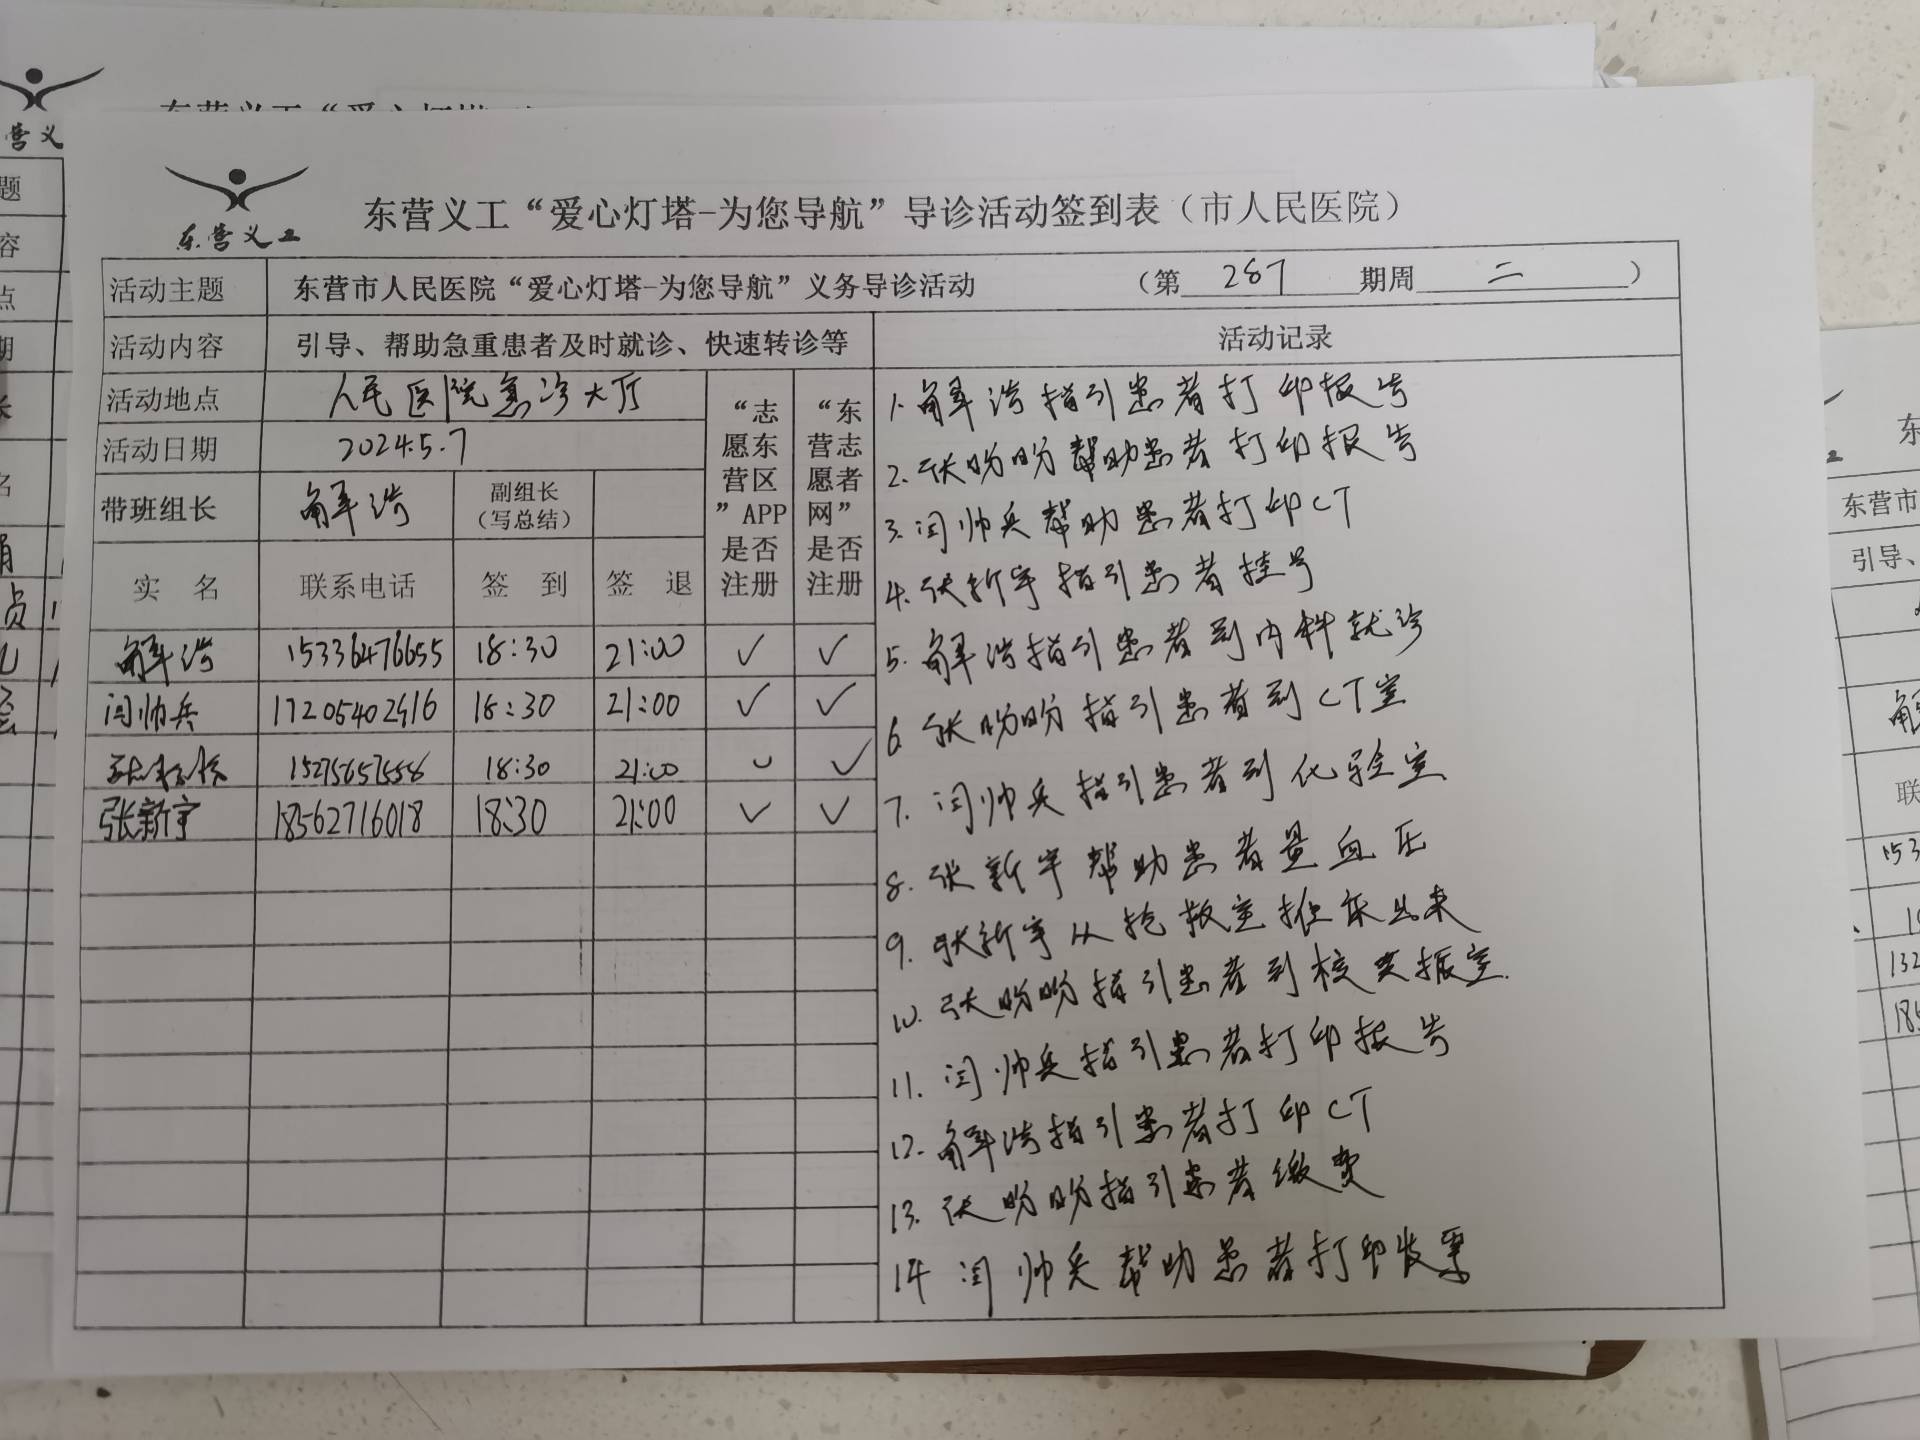 东营义工
东营义工“爱心灯塔-为您导航”导诊活动签到表（市人民医院）
活动主题 东营市人民医院“爱心灯塔-为您导航”义务导诊活动 （第 287 期周 二 ）
活动内容 引导、帮助急重患者及时就诊、快速转诊等 活动记录
活动地点 人民医院急诊大厅
活动日期 2024.5.7
带班组长 解浩 副组长（写总结）
“志愿东营区”APP是否注册
“东营志愿者网”是否注册
实 名 联系电话 签 到 签 退
解浩 15336476655 18:30 21:00 ✓ ✓
闫帅兵 17205402916 18:30 21:00 ✓ ✓
18:30 21:00 ✓
张新宇 18562716018 18:30 21:00 ✓ ✓
1. 解浩指引患者打印报告
2. 张盼盼帮助患者打印报告
3. 闫帅兵帮助患者打印CT
4. 张新宇指引患者挂号
5. 解浩指引患者到内科就诊
6. 张盼盼指引患者到CT室
7. 闫帅兵指引患者到化验室
8. 张新宇帮助患者量血压
9. 张新宇从抢救室推床出来
10. 张盼盼指引患者到核共振室.
11. 闫帅兵指引患者打印报告
12. 解浩指引患者打印CT
13. 张盼盼指引患者缴费
14 闫帅兵帮助患者打印发票